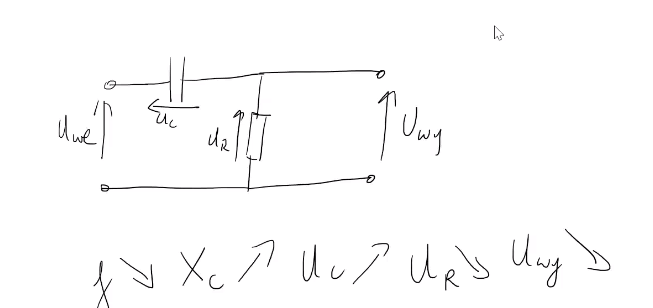 Uwe
uc
uR
Uwy
f ↘ Xc ↗ Uc ↗ UR ↘ Uwy ↘